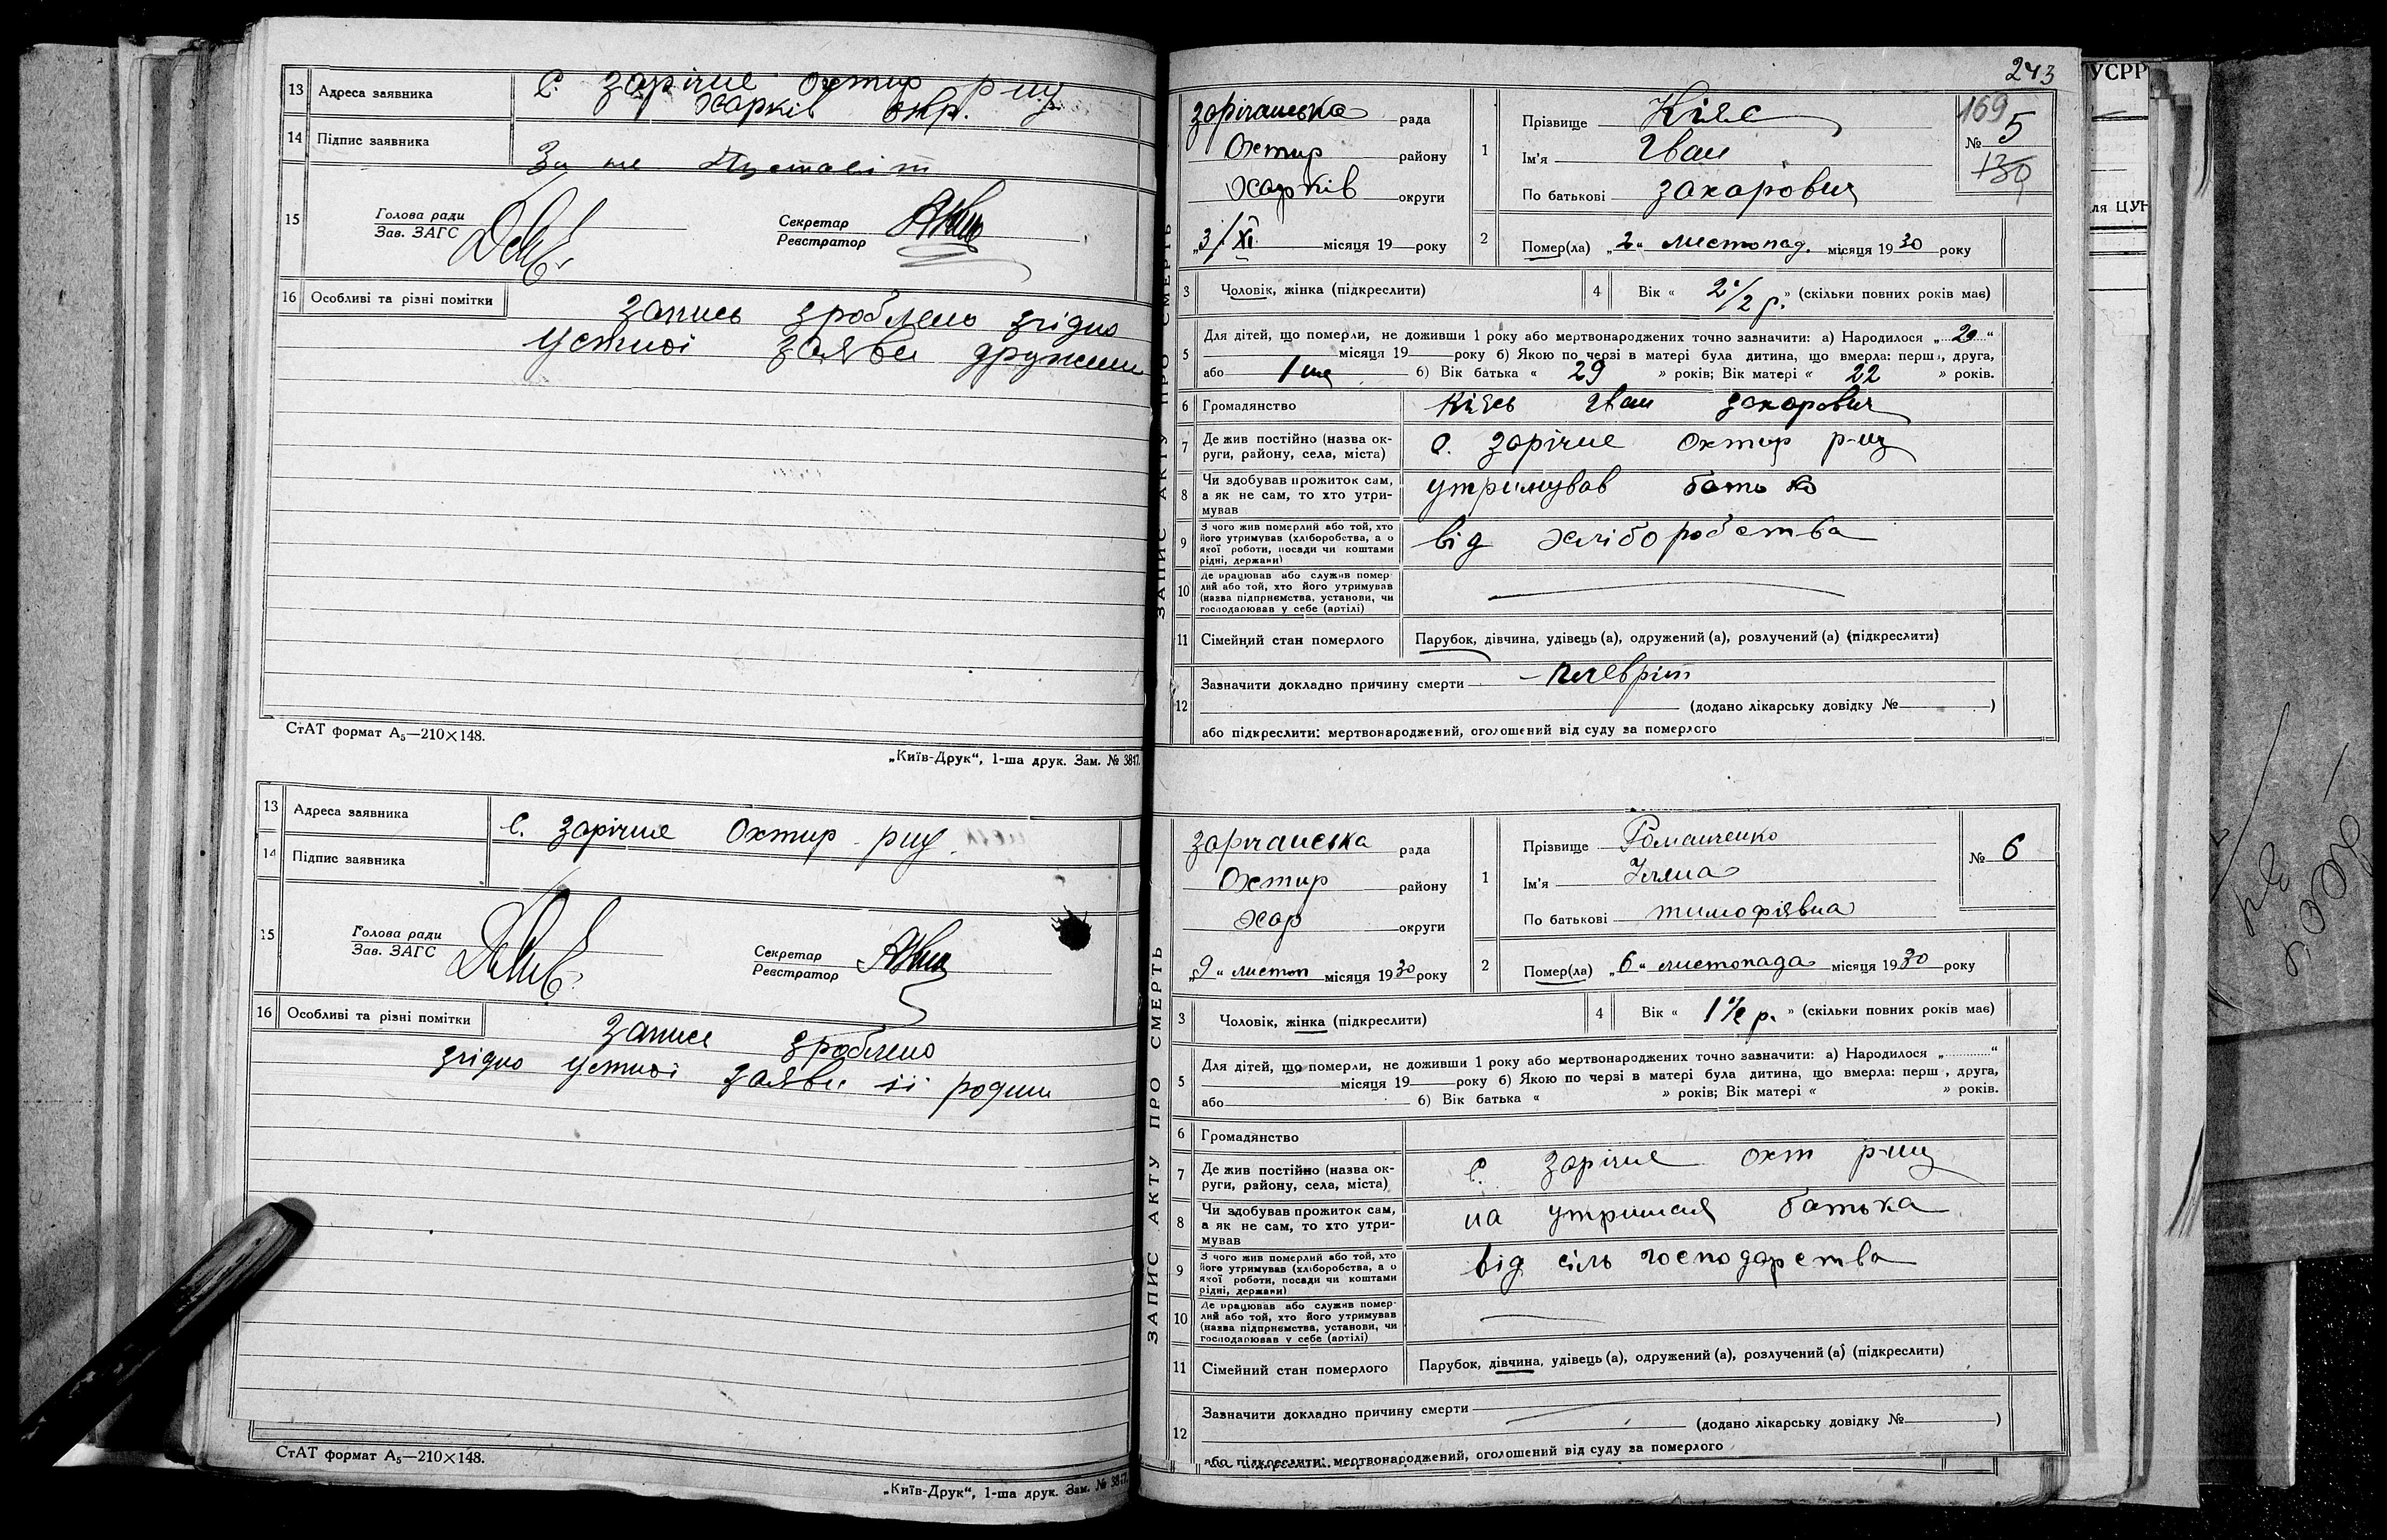 13 Адреса заявника С. Зарічне Охтир р-ну
Харків окр.
14 Підпис заявника За не
15 Голова ради
Зав. ЗАГС
Секретар
Реєстратор
16 Особливі та різні помітки запись зроблено згідно
устної заяви дружини
СтАТ формат А₅—210×148.
„Київ-Друк“, 1-ша друк. Зам. № 3817.
13 Адреса заявника С. Зарічне Охтир р-ну
14 Підпис заявника
15 Голова ради
Зав. ЗАГС
Секретар
Реєстратор
16 Особливі та різні помітки запись зроблено
згідно устної заяви її родини
СтАТ формат А₅—210×148.
„Київ-Друк“, 1-ша друк. Зам. № 3817.
243
ЗАПИС АКТУ ПРО СМЕРТЬ
зарічанська рада
Охтир району
Харків округи
„3/XI місяця 19 року
1 Прізвище Кіяс
Ім'я Іван
По батькові захарович
169
№ 5
130
2 Помер(ла) „2“ листопад. місяця 1930 року
3 Чоловік, жінка (підкреслити)
4 Вік « 2 1/2 р. » (скільки повних років має)
5 Для дітей, що померли, не доживши 1 року або мертвонароджених точно зазначити: а) Народилося „ “
місяця 19 року б) Якою по черзі в матері була дитина, що вмерла: перша, друга,
або 1 ше б) Вік батька « 29 » років; Вік матері « 22 » років.
6 Громадянство Кіясь Іван захарович
7 Де жив постійно (назва округи, району, села, міста) С. зарічне Охтир р-ну
8 Чи здобував прожиток сам, а як не сам, то хто утримував утримував батько
9 З чого жив померлий або той, хто його утримував (хліборобства, а о якої роботи, посади чи коштами рідні, держави) від хліборобства
10 Де працював або служив померлий або той, хто його утримував (назва підприємства, установи, чи господарював у себе (артілі)
11 Сімейний стан померлого Парубок, дівчина, удівець (а), одружений (а), розлучений (а) (підкреслити)
12 Зазначити докладно причину смерти плевріт
(додано лікарську довідку № )
або підкреслити: мертвонароджений, оголошений від суду за померлого
ЗАПИС АКТУ ПРО СМЕРТЬ
зарічанська рада
Охтир району
Хар округи
„9“ листоп місяця 1930 року
1 Прізвище Романченко
Ім'я
По батькові тимофіявна
№ 6
2 Помер(ла) „6“ листопада місяця 1930 року
3 Чоловік, жінка (підкреслити)
4 Вік « 1 1/2 р. » (скільки повних років має)
5 Для дітей, що померли, не доживши 1 року або мертвонароджених точно зазначити: а) Народилося „ “
місяця 19 року б) Якою по черзі в матері була дитина, що вмерла: перш , друга,
або б) Вік батька « » років; Вік матері « » років.
6 Громадянство
7 Де жив постійно (назва округи, району, села, міста) С. Зарічне охт р-ну
8 Чи здобував прожиток сам, а як не сам, то хто утримував на батька
9 З чого жив померлий або той, хто його утримував (хліборобства, а о якої роботи, посади чи коштами рідні, держави) від сіль господарства
10 Де працював або служив померлий або той, хто його утримував (назва підприємства, установи, чи господарював у себе (артілі)
11 Сімейний стан померлого Парубок, дівчина, удівець (а), одружений (а), розлучений (а) (підкреслити)
12 Зазначити докладно причину смерти
(додано лікарську довідку № )
або підкреслити: мертвонароджений, оголошений від суду за померлого
УСРР